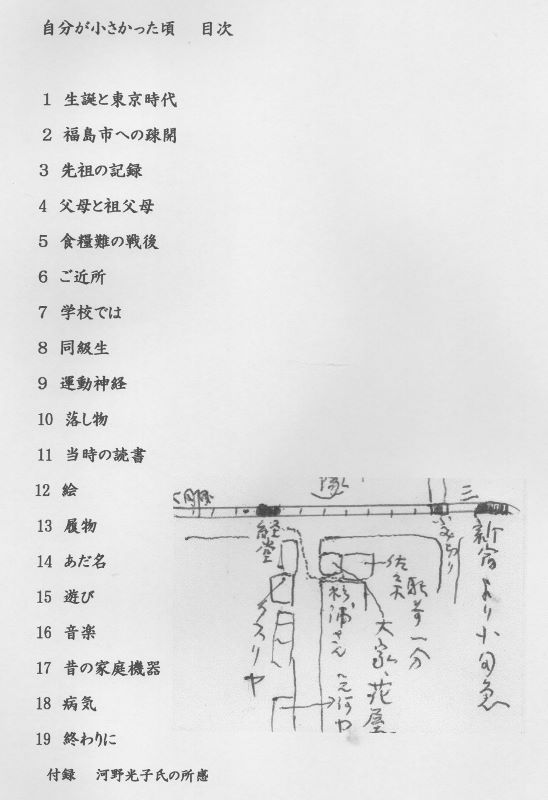 自分が小さかった頃　目次
1 生誕と東京時代
2 福島市への疎開
3 先祖の記録
4 父母と祖父母
5 食糧難の戦後
6 ご近所
7 学校では
8 同級生
9 運動神経
10 落し物
11 当時の読書
12 絵
13 履物
14 あだ名
15 遊び
16 音楽
17 昔の家庭機器
18 病気
19 終わりに
付録　河野光子氏の所感
三
経堂
ふみ切り
新宿より小田急
佐久
駅前一分
杉浦さん
大家、花屋
クスリヤ